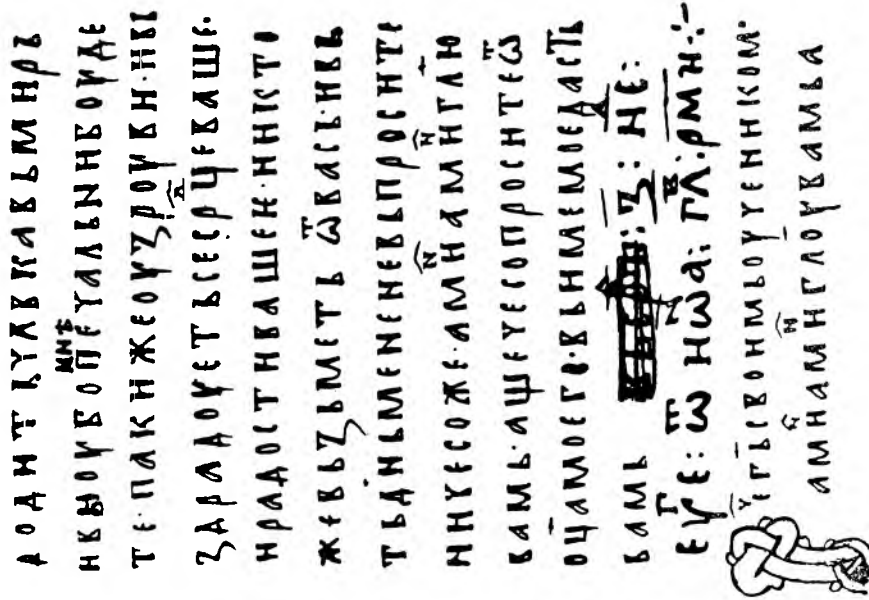 родитьчл҃вкавьмирь
ивыоубопечальимнѣбоуде
те·пакижеоузроуви·ивь
здрадоуетьсесрⷣцеваше·
ирадостивашеи·никто
жевьзьметьѿвась·ивь
тьдньмененевьпросите
ничесоже·амⷩ҇намⷩ҇нглю
вамь·ащечесопроситеѿ
оц҃амоего·вьимемоедасть
вамь :з҃: нє:
еуⷢ҇е: ѿ иѡ҃а: глⷡ҇: рми:-
егⷱ҇ьсвоимьоученником·
амⷩ҇намⷩ҇нглоувамьа